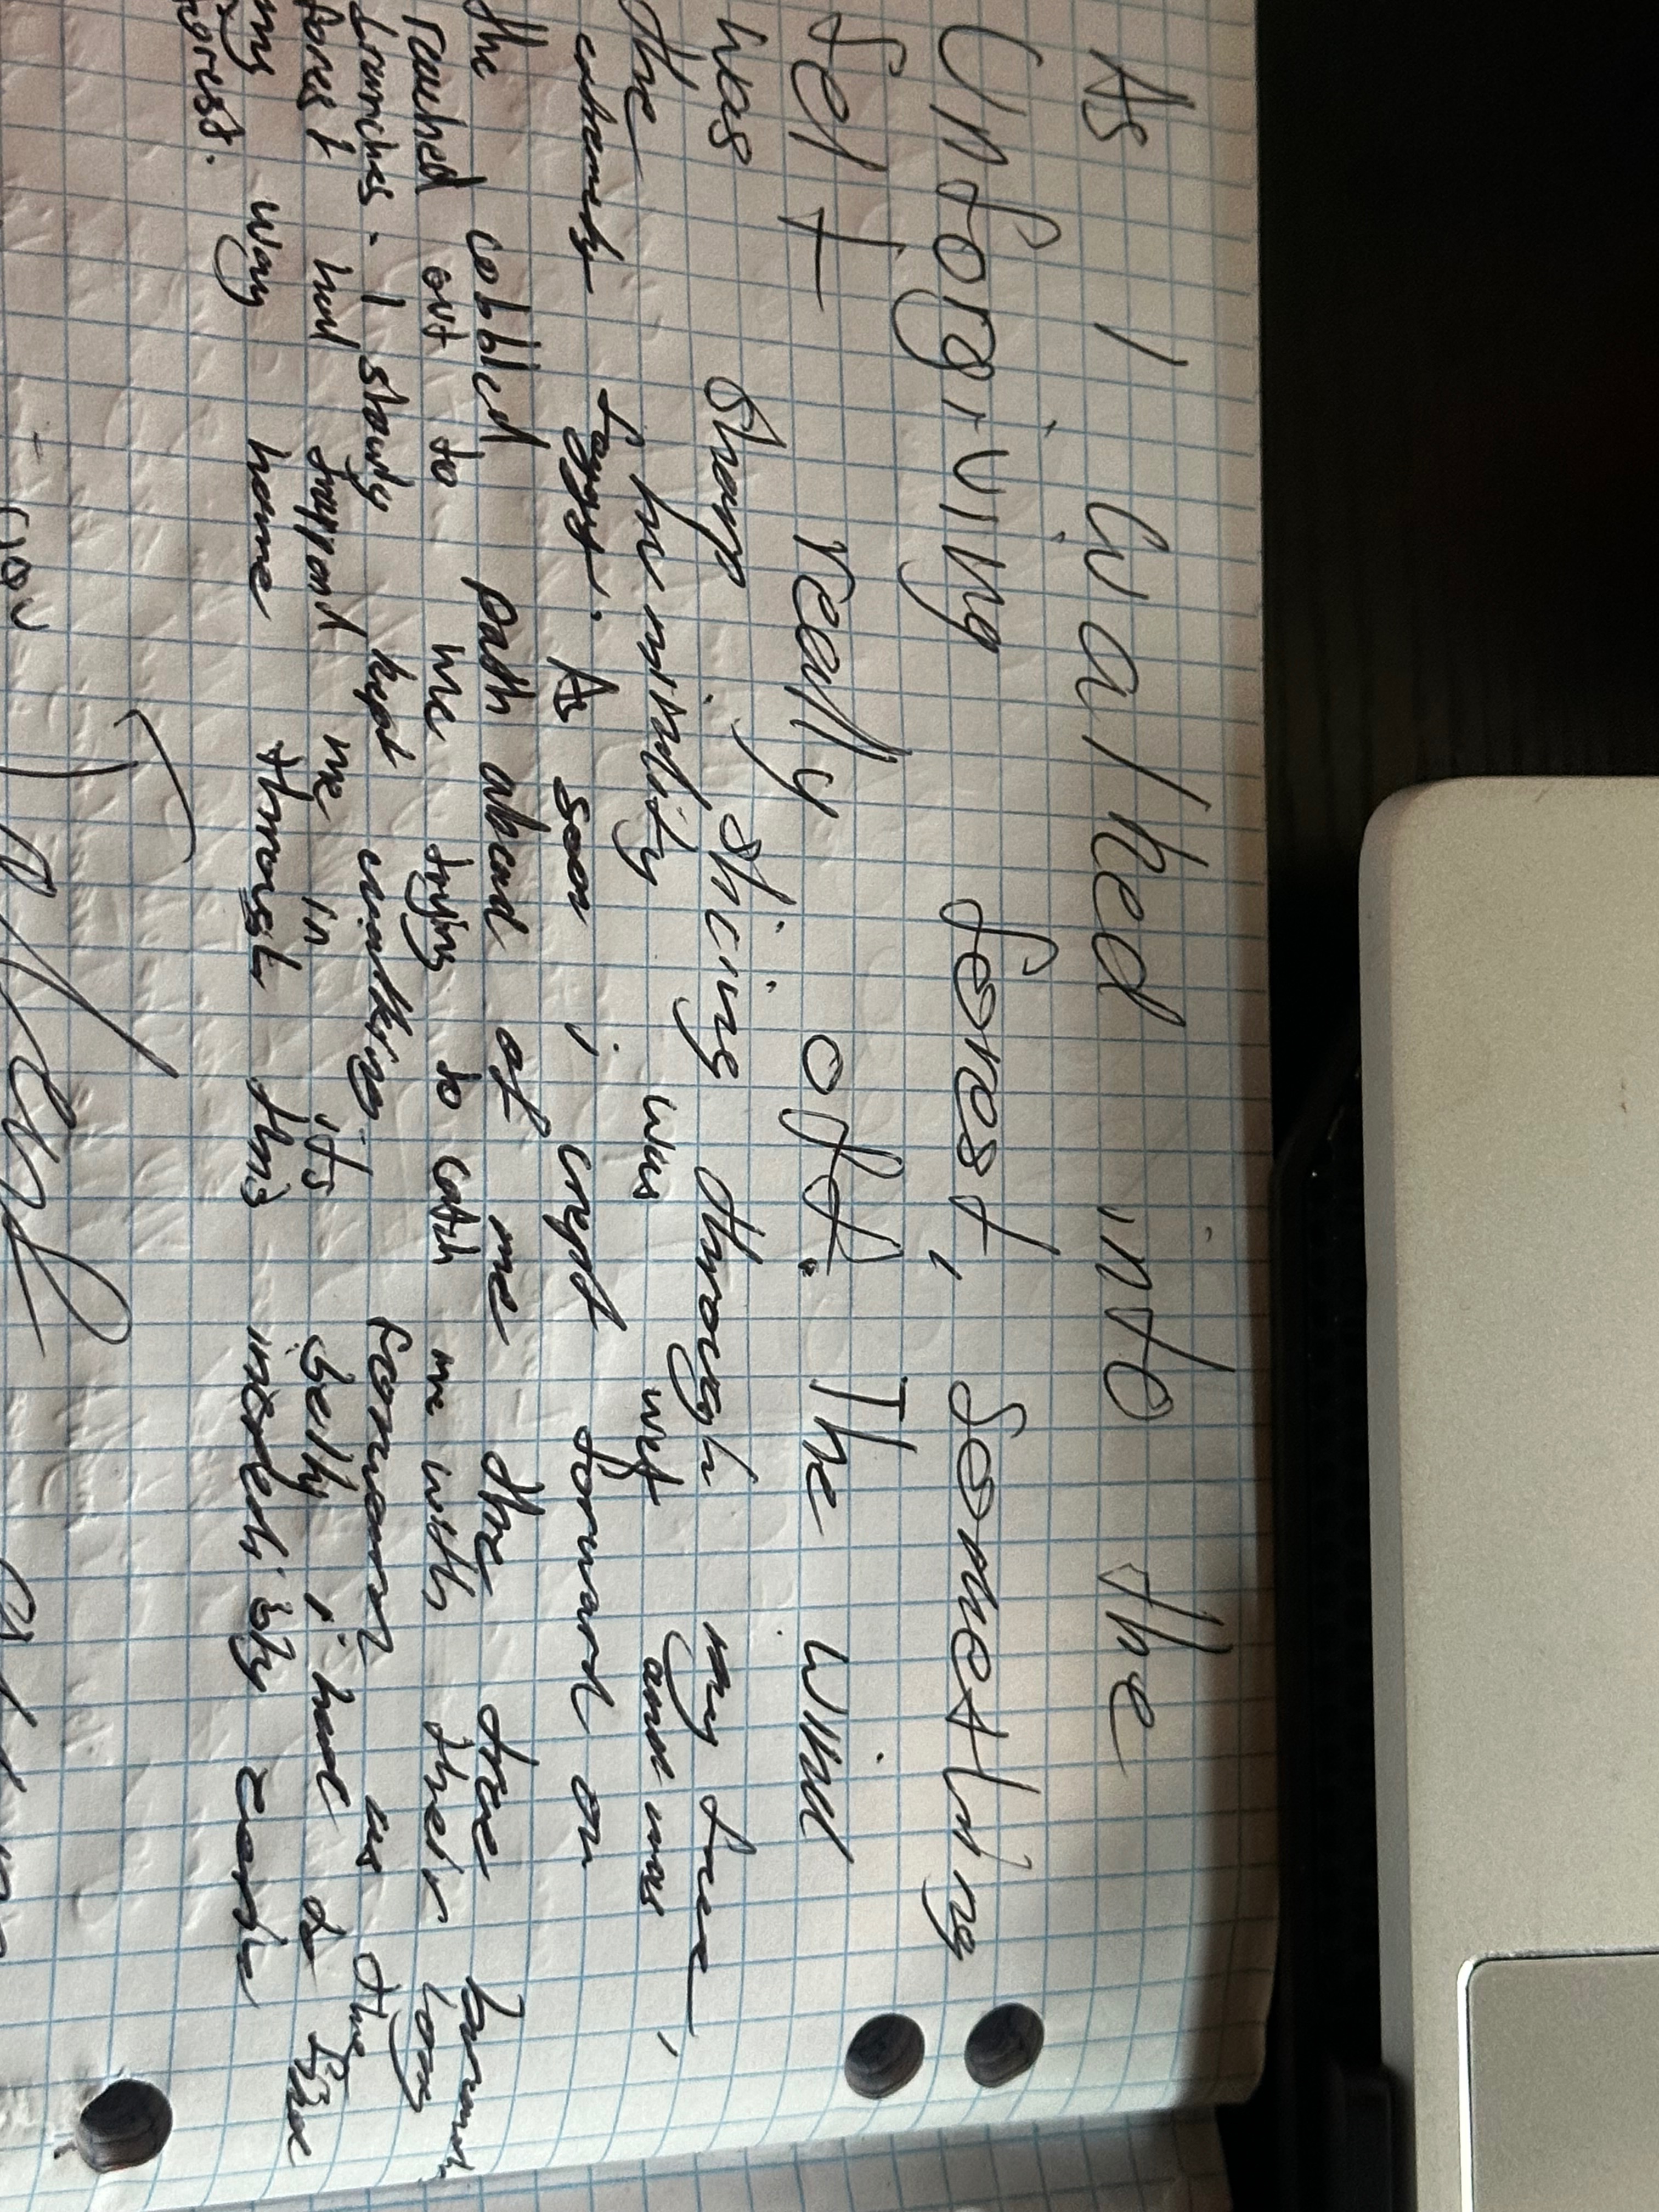 As I walked into the
Unforgiving forest, Something
felt really off. The wind
was Sharp Slicing through my face,
the humidity was wet and was
extremely foggy. As soon i crept forward on
the cobbled path ahead of me the tree branch
reached out to me trying to catch me with their long
branches. I slowly kept walking forward as the
forest had trapped me in its belly i had to find
my way home through this incredibly
forest.